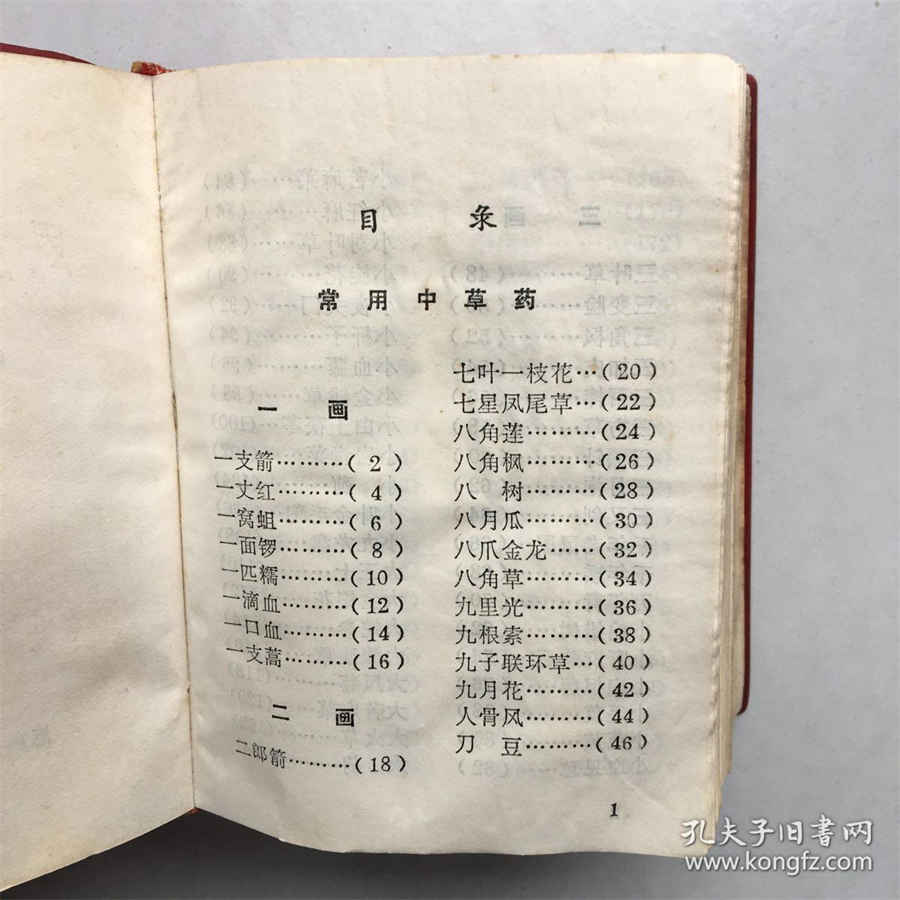 目　录
常用中草药
一　画
一支箭………( 2 )
一丈红………( 4 )
一窝蛆………( 6 )
一面锣………( 8 )
一匹糯………(10)
一滴血………(12)
一口血………(14)
一支蒿………(16)
二　画
二郎箭………(18)
七叶一枝花…(20)
七星凤尾草…(22)
八角莲………(24)
八角枫………(26)
八　树………(28)
八月瓜………(30)
八爪金龙……(32)
八角草………(34)
九里光………(36)
九根索………(38)
九子联环草…(40)
九月花………(42)
人骨风………(44)
刀　豆………(46)
1
孔夫子旧书网
www.kongfz.com